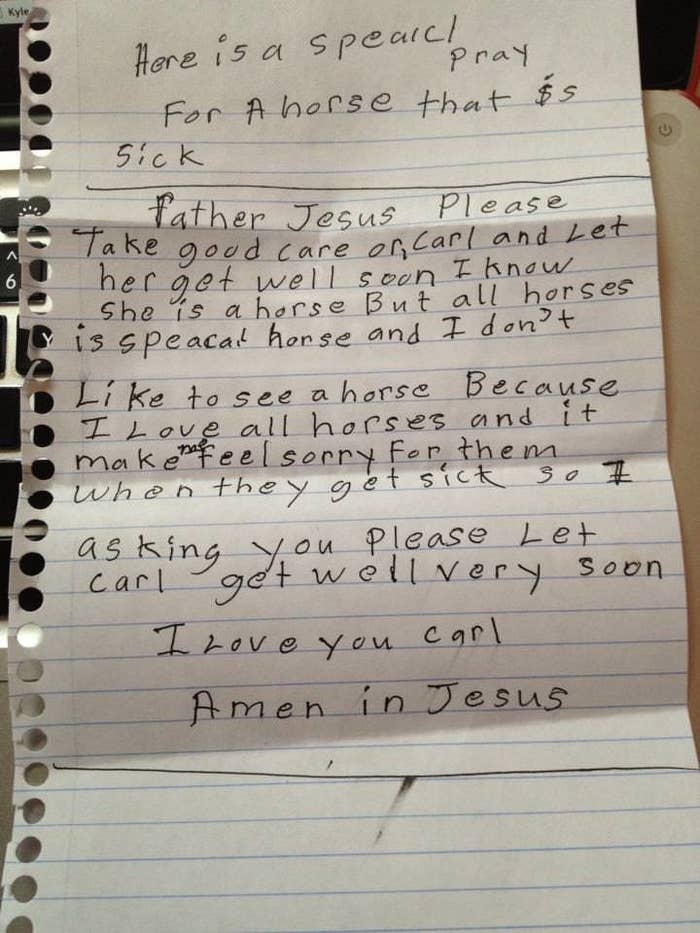 Kyle
Here is a spearcl
pray
For A horse that is
sick
Father Jesus Please
Take good care on, Carl and Let
her get well soon I know
she is a horse But all horses
is speacal horse and I don't
Like to see a horse Because
I Love all horses and it
make me feel sorry For them
when they get sick so I
asking you Please Let
carl get well very soon
I Love you carl
Amen in Jesus
^
6
Y